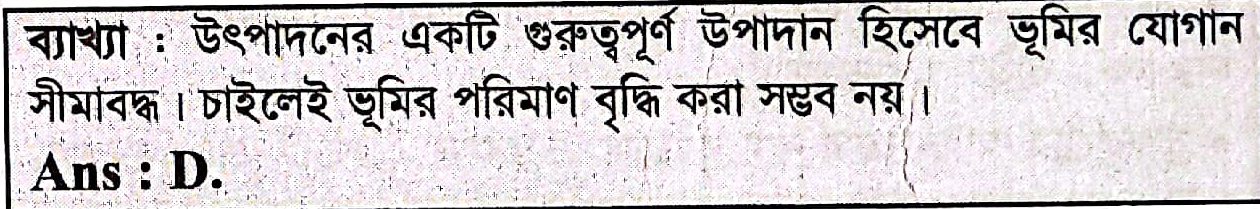 ব্যাখ্যা : উৎপাদনের একটি গুরুত্বপূর্ণ উপাদান হিসেবে ভূমির যোগান
সীমাবদ্ধ। চাইলেই ভূমির পরিমাণ বৃদ্ধি করা সম্ভব নয়।
Ans : D.